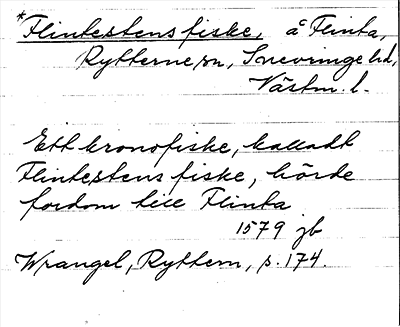 *Flintestens fiske, å Flinta,
Rytterne sn, Snevringe hd,
Västm. l.
Ett kronofiske, kalladt
Flintestens fiske, hörde
fordom till Flinta
1579 jb
Wrangel, Ryttern, s. 174.